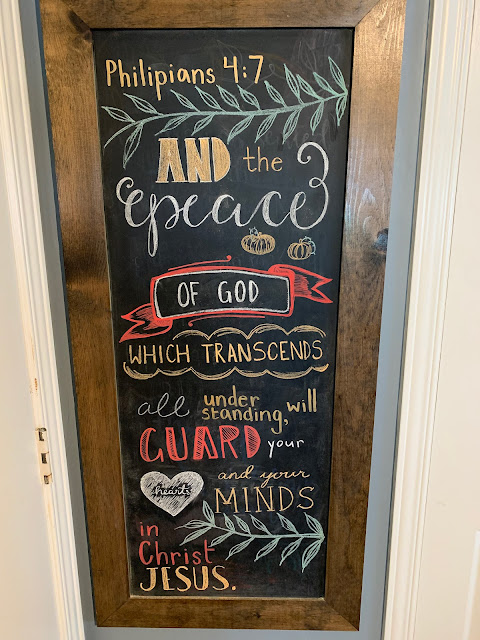 Philipians 4:7
AND the
peace
OF GOD
WHICH TRANSCENDS
all under standing, will
GUARD your
hearts and your MINDS
in
Christ
JESUS.